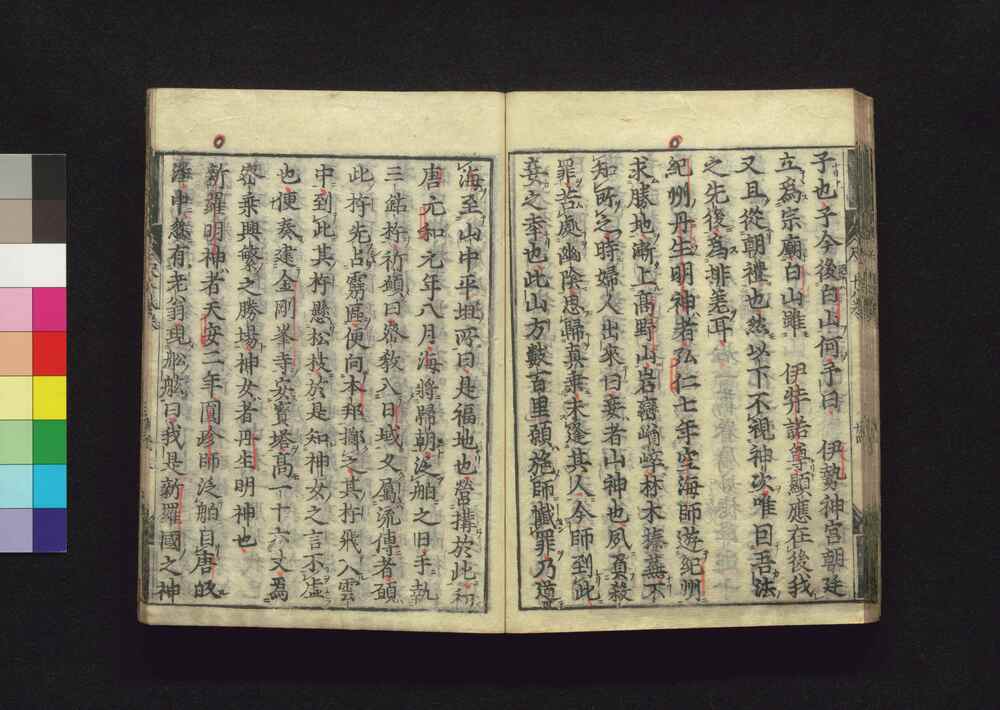 子也子今後白山何予曰 伊勢神宮朝廷
立為宗廟白山雖 伊弉諾尊顯應在後我
又且從朝禮也然以下不視神次唯曰吾法
之先後為排差耳
紀州丹生明神者弘仁七年空海師遊紀州
求勝地漸上髙野山岩巒峭崪林木蓁蕪不
知所之時婦人出來曰妾者山神也夙負殺
罪苦處幽陰思歸真乘未逢其人今師到此
妾之幸也此山方數百里願施師懺罪乃導
海至山中平坦所曰是福地也營搆於此初
唐元和元年八月海將歸朝泛舶之日手執
三鈷杵祈願曰密敎入日域久屬流傳者頭
此杵先占靈區便向本邦擲之其杵飛入雲
中到此其杵懸松枝於是知神女之言不虛
也便奏建金剛峯寺寘寳塔髙一十六丈為
密乘興繁之勝場神女者丹生明神也
新羅明神者天安二年圓珍師泛舶自唐皈
洋中忽有老翁現舩舷曰我是新羅國之神